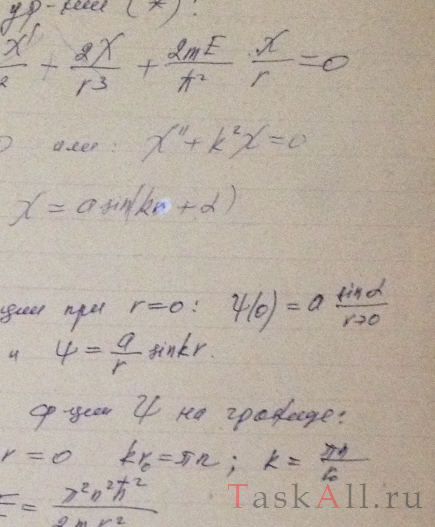 ур-нии (*):
X'/2 + 2X/r3 + 2mE/ħ² X/r = 0
или: X'' + k²X = 0
X = a sin(kr + α)
ции при r=0: Ψ(0) = a sinα/r→0
и Ψ = a/r sinkr.
ф-ции Ψ на границе:
r = 0 kr₀ = πn; k = πn/r₀
E = π²n²ħ²/2mr²
TaskAll.ru